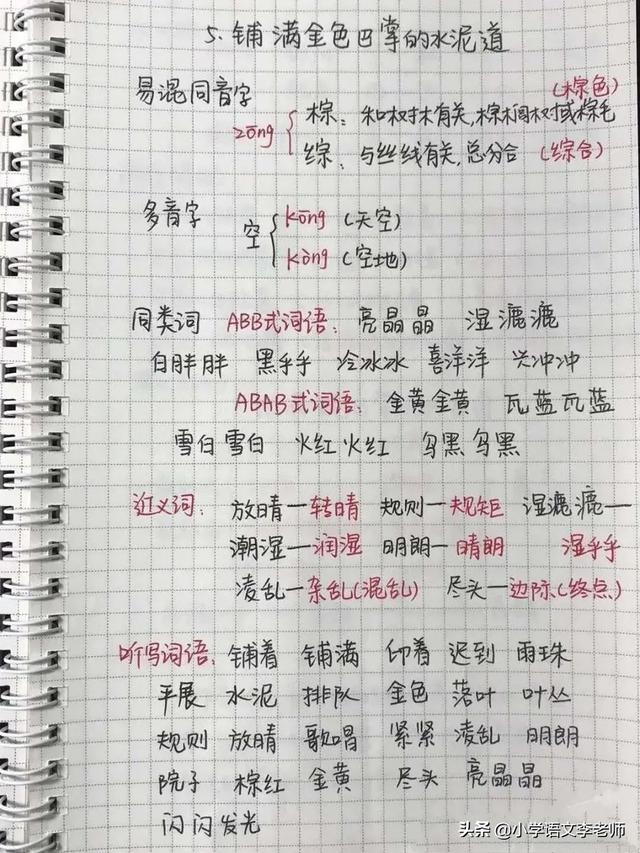 5.铺满金色巴掌的水泥道
易混同音字 (棕色)
zōng { 棕:和树木有关,棕榈树或棕毛
综:与丝线有关,总分合 (综合)
多音字 空 { kōng (天空)
kòng (空地)
同类词 ABB式词语:亮晶晶 湿漉漉
白胖胖 黑乎乎 冷冰冰 喜洋洋 兴冲冲
ABAB式词语:金黄金黄 瓦蓝瓦蓝
雪白雪白 火红火红 乌黑乌黑
近义词:放晴—转晴 规则—规矩 湿漉漉—
潮湿—润湿 明朗—晴朗 湿乎乎
凌乱—杂乱(混乱) 尽头—边际(终点)
听写词语:铺着 铺满 印着 迟到 雨珠
平展 水泥 排队 金色 落叶 叶丛
规则 放晴 歌唱 紧紧 凌乱 明朗
院子 棕红 金黄 尽头 亮晶晶
闪闪发光
头条 @小学语文李老师